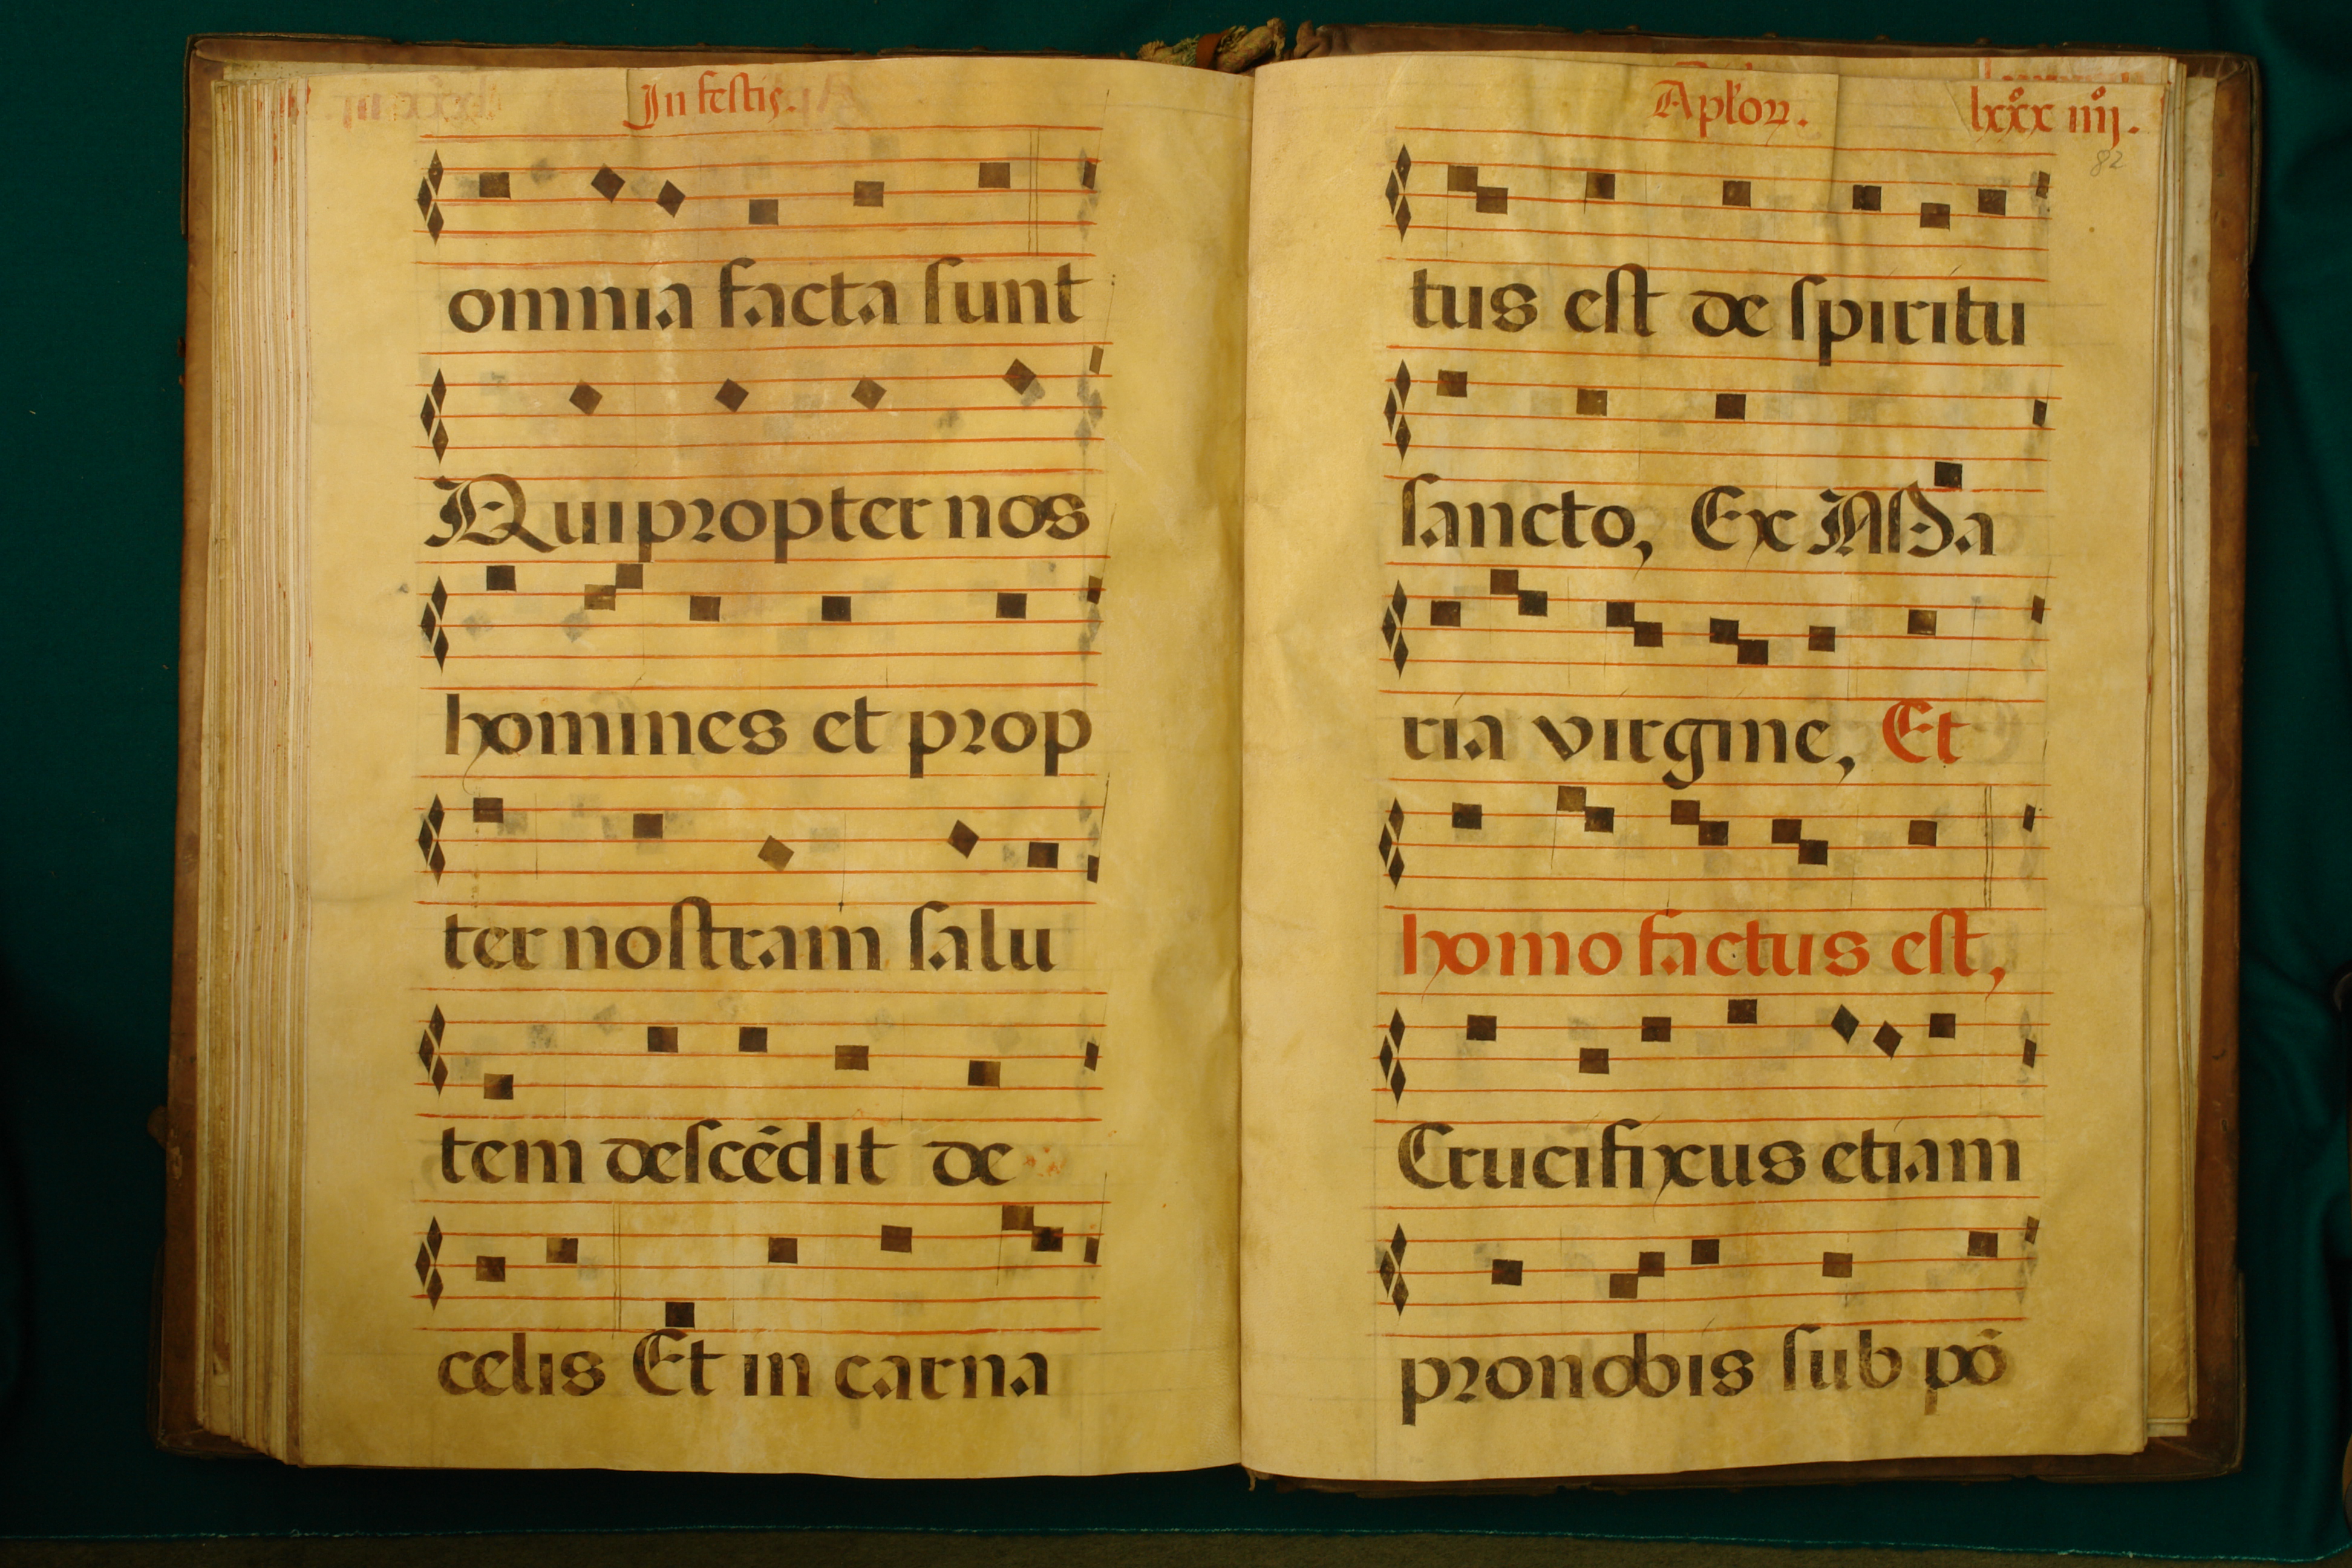 In festis.
omnia facta sunt
Qui propter nos
homines et prop
ter nostram salu
tem descēdit de
celis Et in carna
Aplōꝝ. lxxx iiij.
82
tus est de spiritu
sancto, Ex Ma
ria virgine, Et
homo factus est,
Crucifixus etiam
pro nobis sub pō